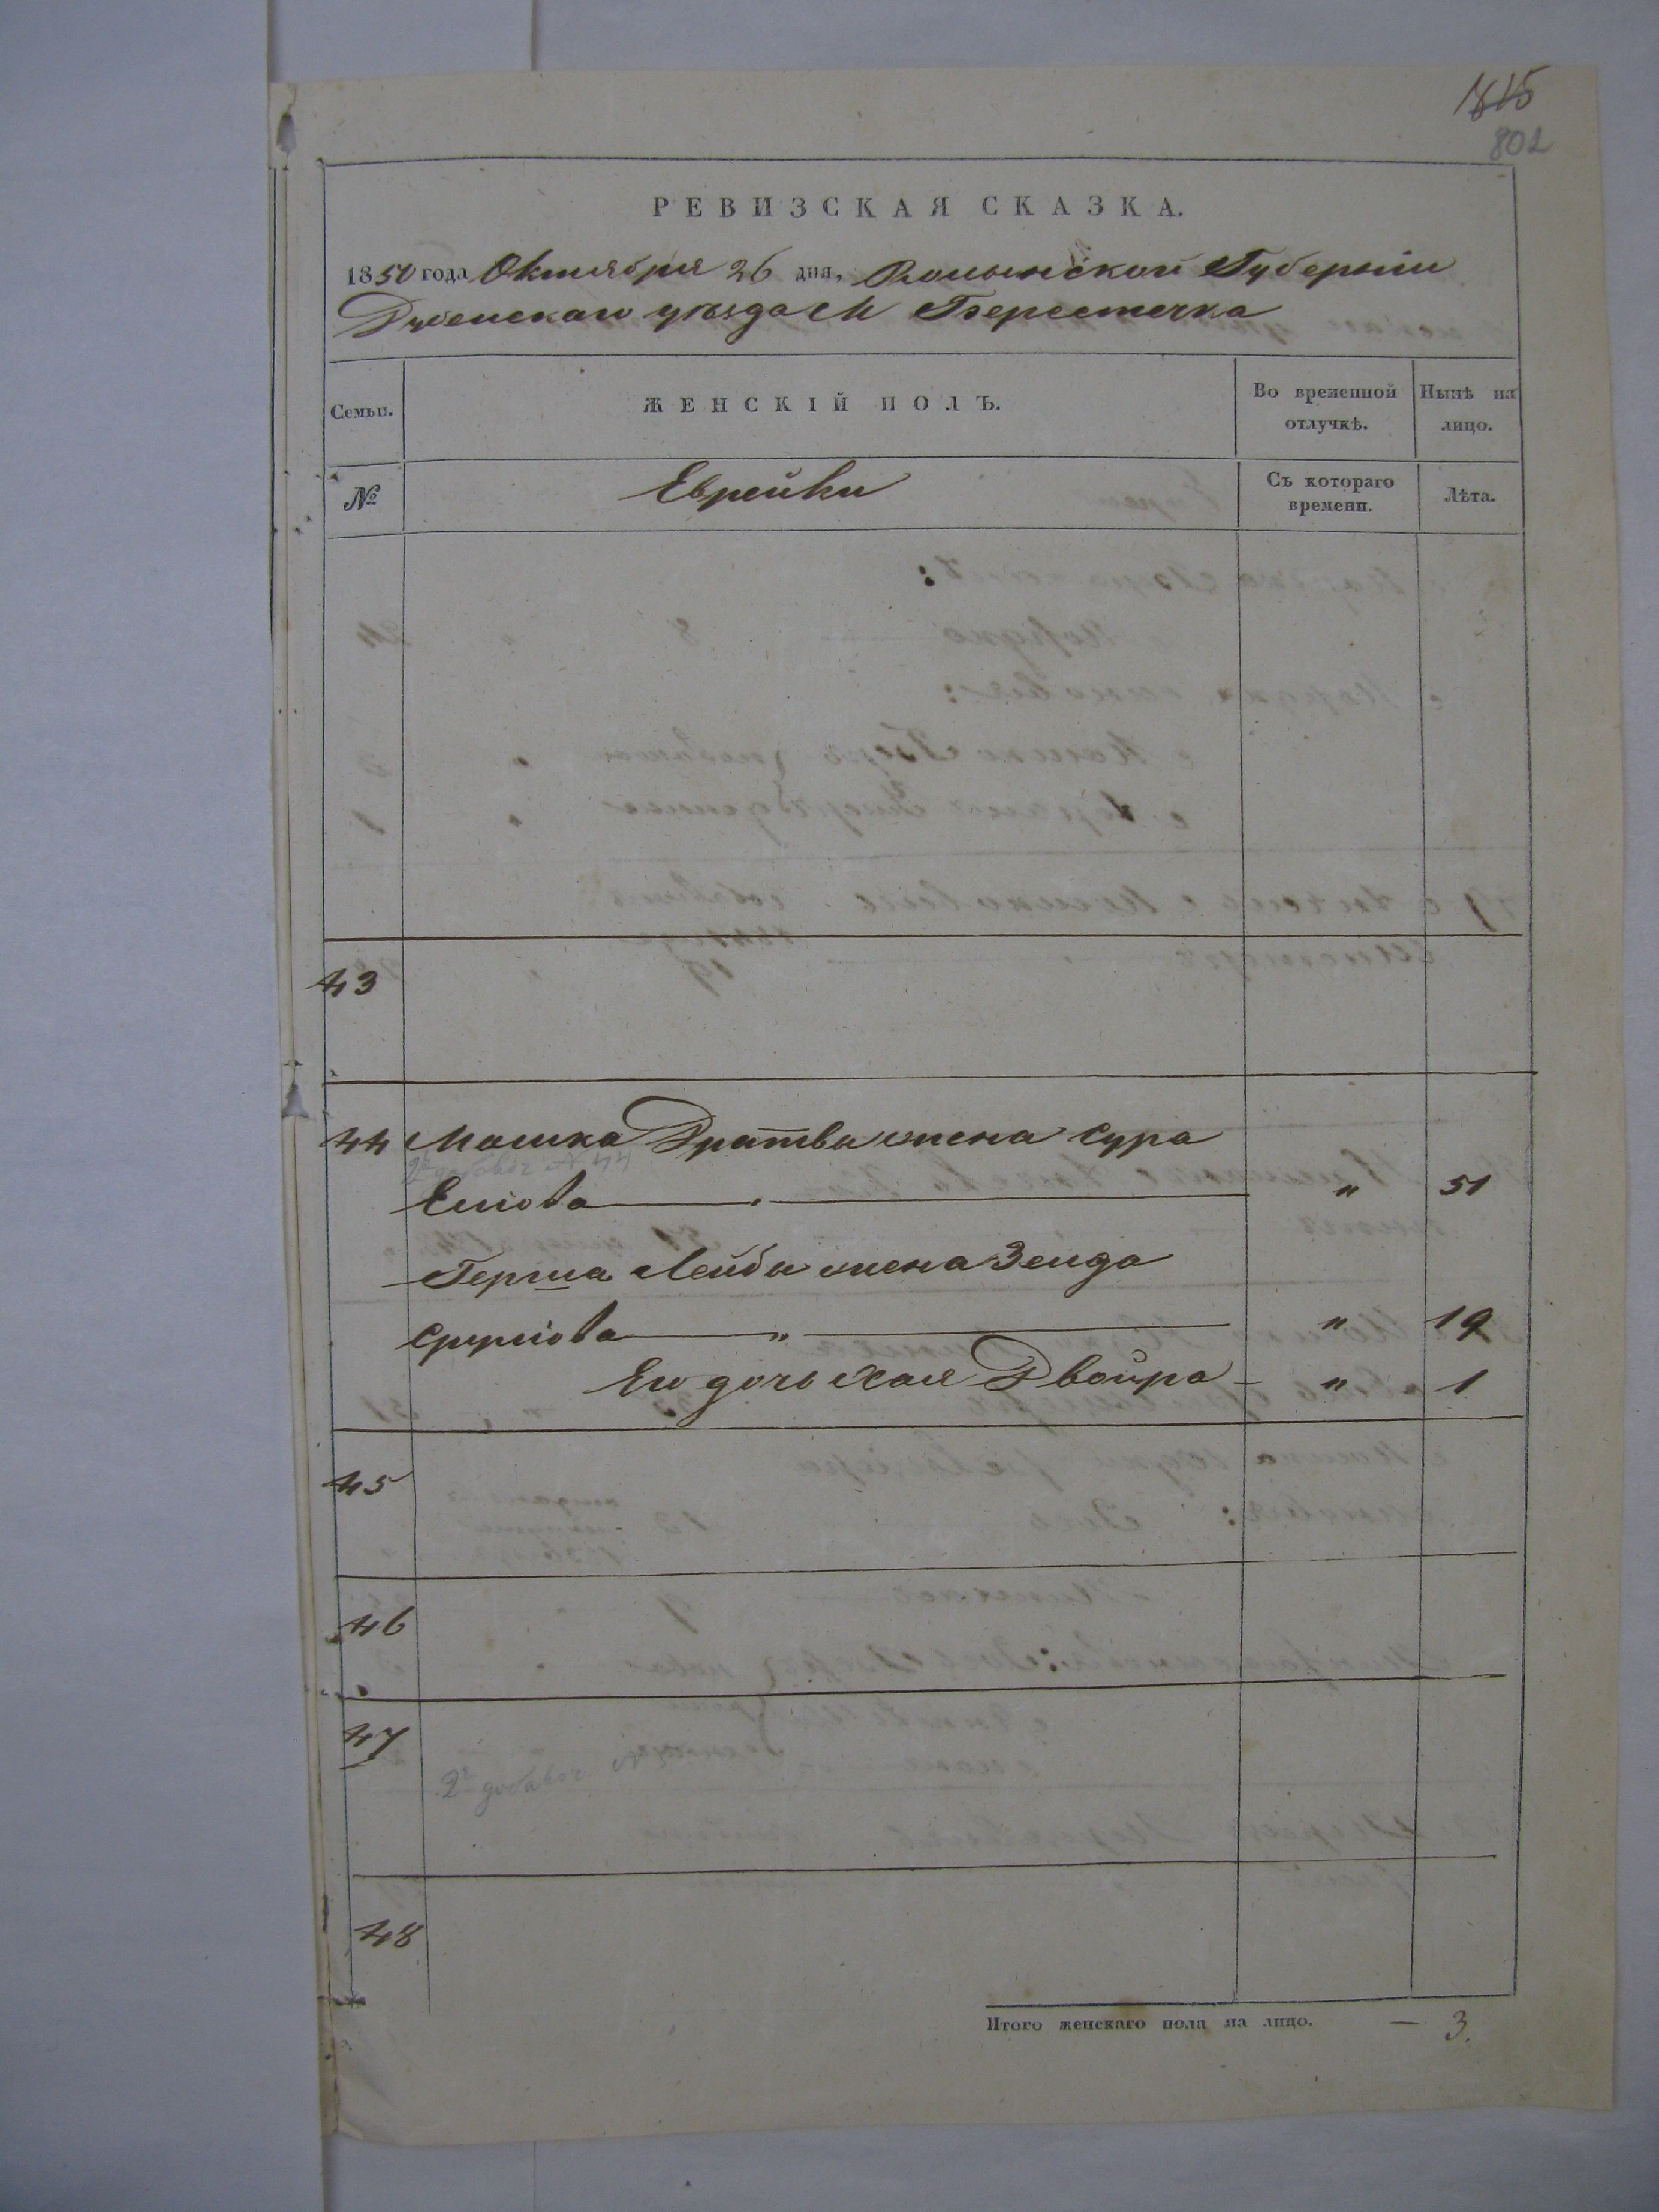 802
РЕВИЗСКАЯ СКАЗКА.
1850 года Октября 26 дня, Волынской Губерніи
Дубенскаго уѣзда М Берестечка
Семьи.
ЖЕНСКІЙ ПОЛЪ.
Во временной отлучкѣ.
Нынѣ на лицо.
№
Еврейки
Съ котораго времени.
Лѣта.
43
44 Мошка Дратвы жена Сура
2я добавоч № 44
" 51
Герша Лейбы жена Зенда
Сруліова " " 19
Его дочь Хая Двойра - " 1
45
46
47
2я добавоч
48
Итого женскаго пола на лицо. — 3.